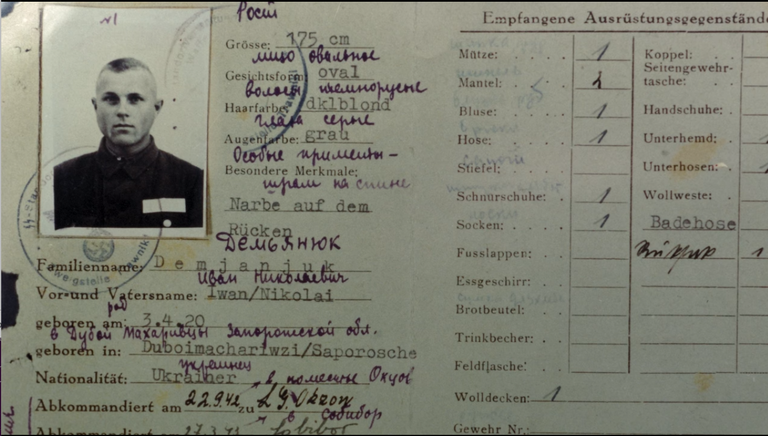 №1
Рост
Grösse: 175 cm
лицо овальное
Gesichtsform: oval
волосы темнорусые
Haarfarbe: dklblond
глаза серые
Augenfarbe: grau
Особые приметы-
Besondere Merkmale:
шрам на спине
Narbe auf dem
Rücken
Демьянюк
Familienname: Demjanjuk
Иван Николаевич
Vor-und Vatersname: Iwan/Nikolai
geboren am: 3.4.20
в Дубой Махаривцы Запорожской обл.
geboren in: Duboimachariwzi/Saporosche
украинец
Nationalität: Ukrainer
в поместье Окцов
Abkommandiert am 22.9.42 zu L.G. Okzow
в Собибор
Abkommandiert am 27.3.43 Sobibor
Empfangene Ausrüstungsgegenstände
Mütze: 1 Koppel:
Mantel: 1 Seitengewehr-
tasche:
Bluse: 1 Handschuhe:
Hose: 1 Unterhemd: 1
Stiefel: Unterhosen: 1
Schnürschuhe: 1 Wollweste:
Socken: 1 Badehose
Fusslappen: 1
Essgeschirr:
Brotbeutel:
Trinkbecher:
Feldflasche:
Wolldecken: 1
Gewehr Nr.: